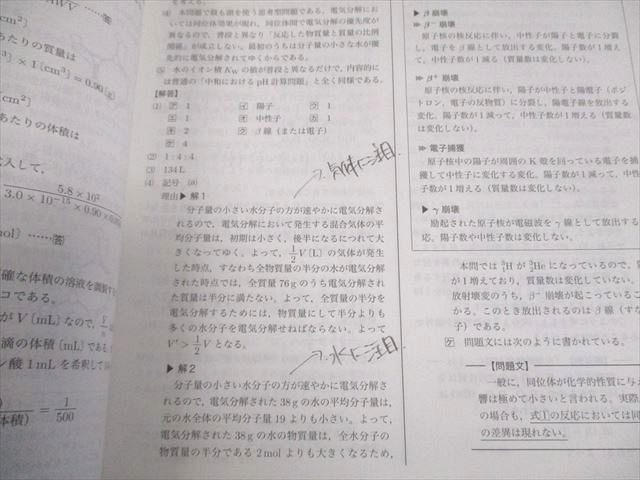 MWV ……答
あたりの質量は
〔cm³〕× 1〔cm³〕= 0.90〔g〕
〔cm²〕
あたりの体積は
代入して，
5.8 × 10²
3.0 × 10⁻¹⁵ × 0.90 × 0.90
mol〕……答
確な体積の溶液を調製する
コである。
が V〔mL〕なので，
滴の体積〔mL〕である
ン酸 1 mL を希釈して
= 1/500
体積）
を考える。
⑷ 本問題で最も頭を使う思考型問題である。電気分解にお
いては同位体効果が現れ，同位体間で電気分解の優先度が
異なるので，普段と異なり「反応した物質量と質量の比例
関係」が成立しない。最初のうちは分子量の小さな水が優
先的に電気分解されてゆくからである。
⑸ 水のイオン積 Kw の値が普段と異なるだけで，内容的に
は普通の「中和における pH 計算問題」と全く同様である。
【解答】
⑴ ア 1 イ 陽子 ウ 1
エ 1 オ 中性子 カ 1
キ 2 ク β 線（または電子）
ケ 4
⑵ 1：4：4
⑶ 134 L
⑷ 記号 ⒜
→気体に注目.
理由▶解 1
分子量の小さい水分子の方が速やかに電気分解さ
れるので，電気分解において発生する混合気体の平
均分子量は，初期は小さく，後半になるにつれて大
きくなってゆく。よって，1/2 V〔L〕の気体が発生
した時点，すなわち全物質量の半分の水が電気分解
された時点では，全質量 76 g のうち電気分解され
た質量は半分に満たない。よって，全質量の半分を
電気分解するためには，物質量にして半分よりも
多くの水分子を電気分解せねばならない。よって
V' > 1/2 V となる。
→水に注目
▶解 2
分子量の小さい水分子の方が速やかに電気分解さ
れるので，電気分解された 38 g の水の平均分子量は，
元の水全体の平均分子量 19 よりも小さい。よって，
電気分解された 38 g の水の物質量は，全水分子の
物質量の半分である 2 mol よりも大きくなるため，
▶ β 崩壊
≫ β⁻ 崩壊
原子核の核反応に伴い，中性子が陽子と電子に分裂
し，電子を β 線として放出する変化。陽子数が 1 増え
て，中性子数が 1 減る（質量数は変化しない）。
≫ β⁺ 崩壊
原子核の核反応に伴い，陽子が中性子と陽電子（ポジ
トロン，電子の反物質）に分裂し，陽電子線を放出する
変化。陽子数が 1 減って，中性子数が 1 増える（質量数
は変化しない）。
≫ 電子捕獲
原子核中の陽子が周囲の K 殻を回っている電子を捕
獲して中性子に変化する変化。陽子数が 1 減って，中性
子数が 1 増える（質量数は変化しない）。
▶ γ 崩壊
励起された原子核が電磁波を γ 線として放出する
応。陽子数や中性子数は変化しない。
本問では ³₁H が ³₂He になっているので，陽
が 1 増えており，質量数は変化していない。
放射壊変のうち，β⁻ 崩壊が起こっているこ
かる。このとき放出されるのは β 線（すな
子）である。
ケ 問題文には次のように書かれている。
【問題文】
一般に，同位体が化学的性質に与え
響は極めて小さいと言われる。実際，
の場合も，式①の反応においては同
の差異は現れない。